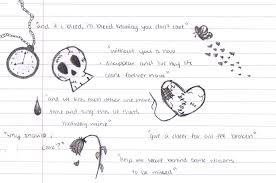 "and if i bleed, i'll bleed knowing you don't care"
"without you is how
disappear and live my life
alone forever now"
"and we kiss each other one more
time and sing this
"why should i
care?"
"give a cheer for all the broken"
"help me leave behind some reasons
to be missed"